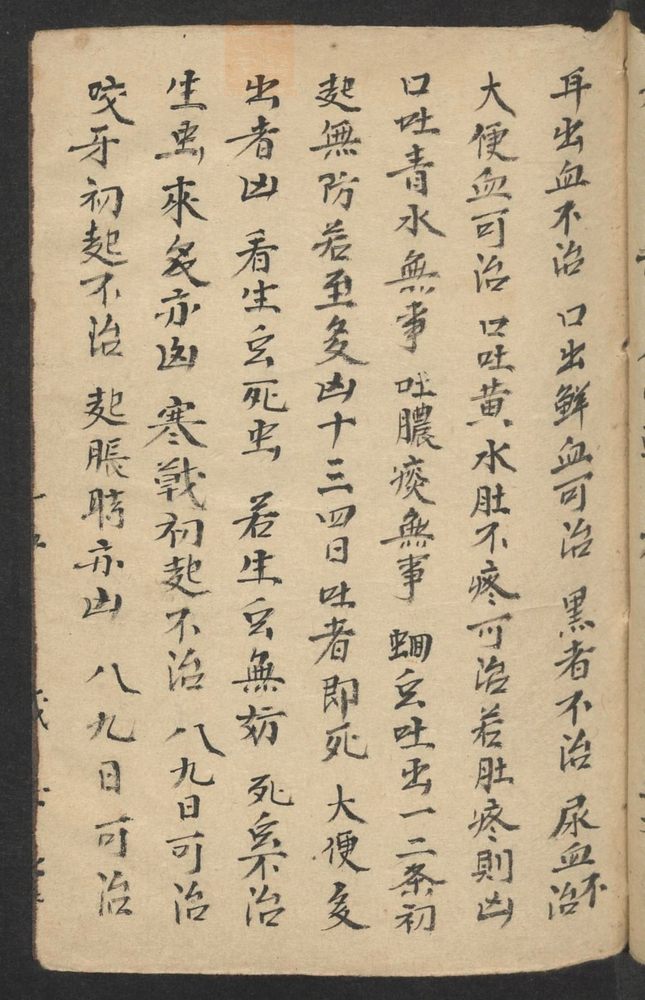 耳出血不治 口出鮮血可治 黑者不治 尿血不治
大便血可治 口吐黄水肚不疼可治若肚疼則凶
口吐青水無事 吐膿痰無事 蛔虫吐出一二条初
起無防若至多凶十三四日吐者即死 大便多
出者凶 看生虫死虫 若生虫無妨 死虫不治
生虫來多亦凶 寒戰初起不治 八九日可治
咬牙初起不治 起脹時亦凶 八九日可治